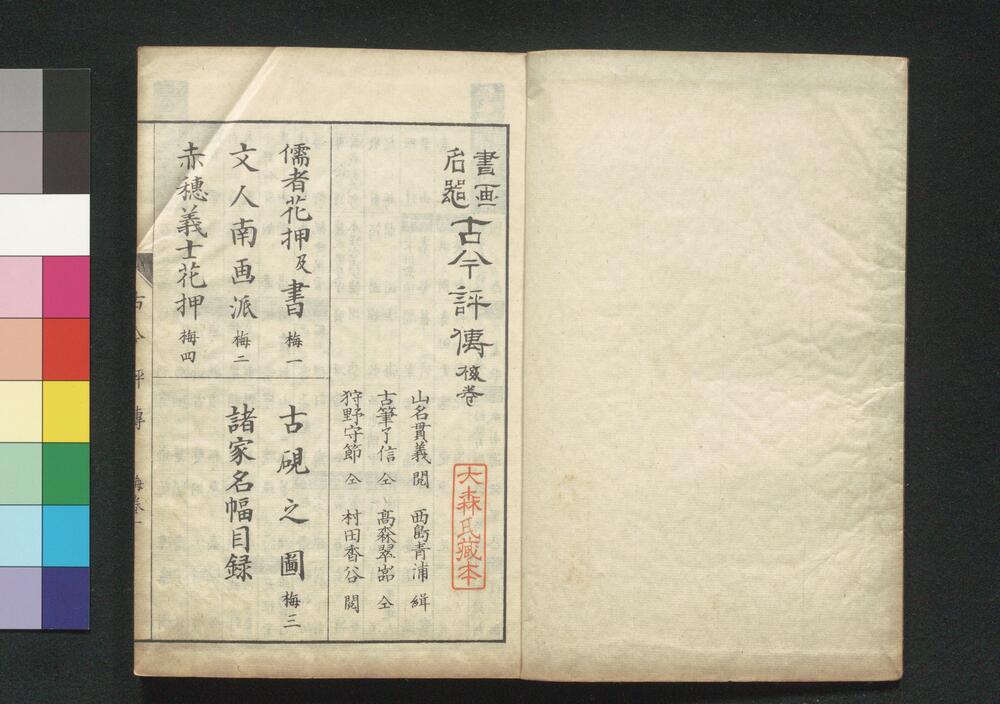 書画
名器
古今評傳 梅巻
山名貫義 閲 西島青浦 緝
古筆了信 仝 高森翠嵓 仝
狩野守節 仝 村田香谷 閲
儒者花押及書 梅一
古硯之圖 梅三
文人南画派 梅二
諸家名幅目録
赤穗義士花押 梅四
古今評傳 梅巻
大森氏藏本